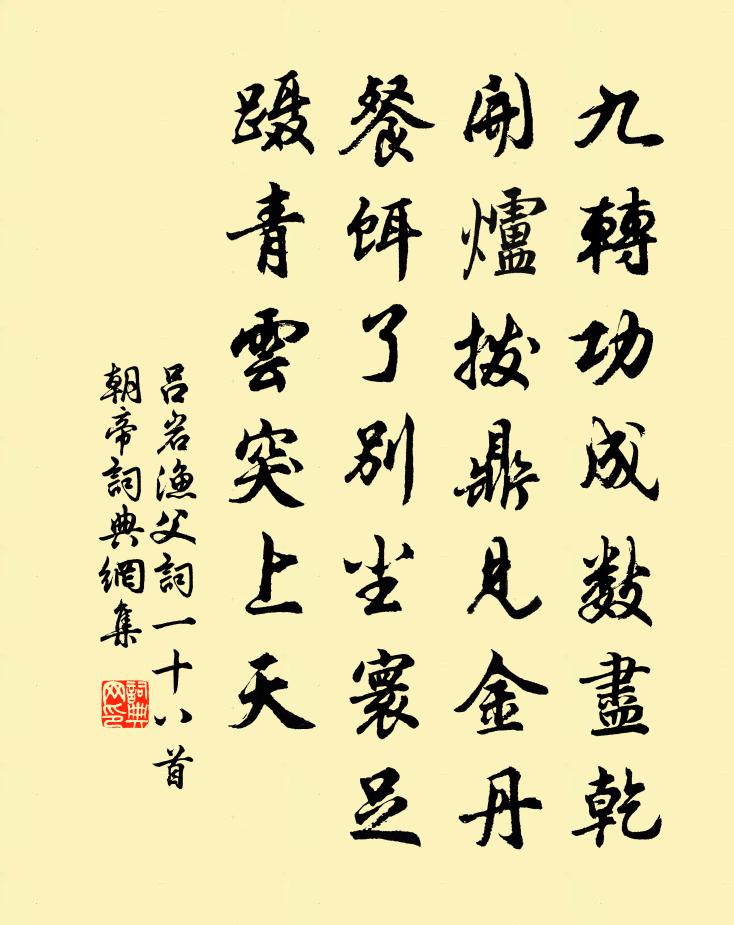 九轉功成数盡乾
開爐拨鼎見金丹
餐餌了别尘寰足
蹑青雲突上天
吕岩渔父詞一十八首
朝帝詞典網集
詞典
网印